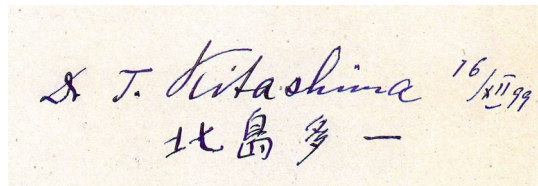 Dr T. Kitashima 16/XII 99
北島多一